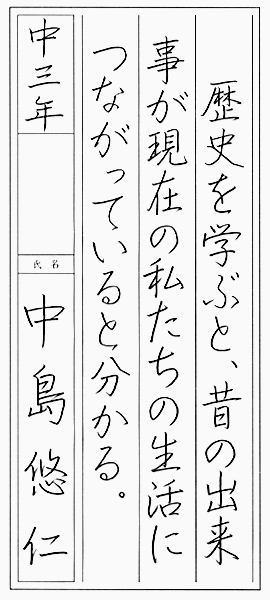 歴史を学ぶと、昔の出来
事が現在の私たちの生活に
つながっていると分かる。
中三年
氏名
中島悠仁